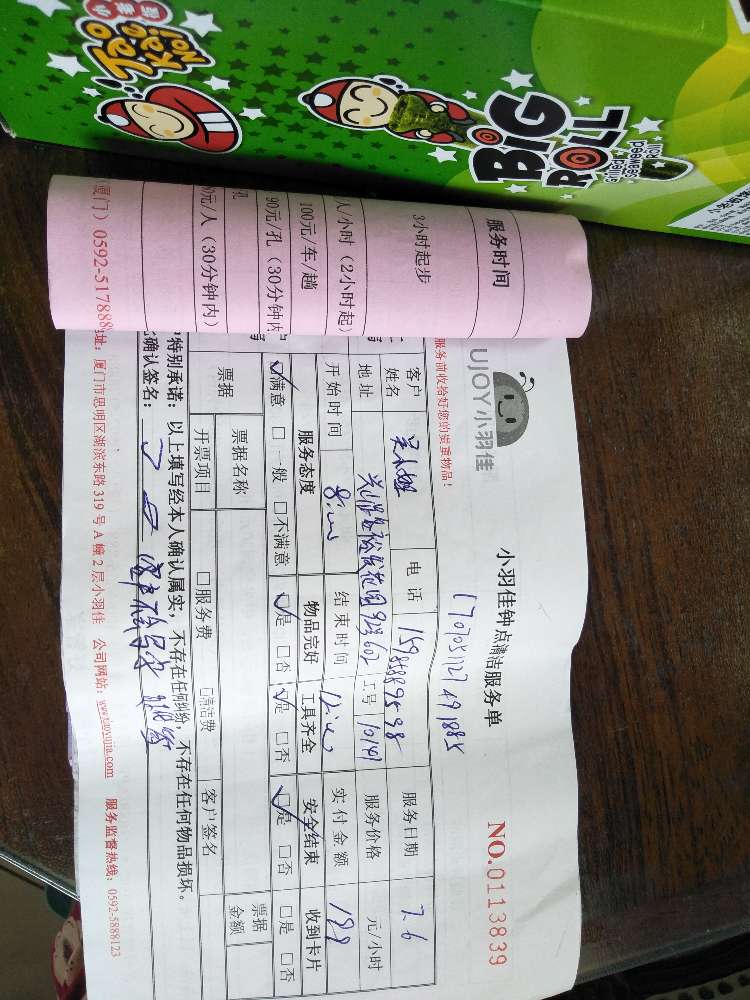 小老板
Tao Kae Noi
BIG ROLL
grilled seaweed roll
服务时间
3小时起步
人/小时（2小时起）
100元/车/趟
90元/孔（30分钟内
孔
0元/人（30分钟内）
厦门）0592-517888
UJOY小羽佳
小羽佳钟点清洁服务单
NO.0113839
服务前收给好您的贵重物品！
客户姓名
电话
服务日期 7.6
地址
923 602
工号 10141
服务价格
元/小时
开始时间
结束时间
实付金额 188
服务态度 物品完好 工具齐全 安全结束 收到卡片
☑满意 □一般 □不满意 ☑是 □否 ☑是 □否 ☑是 □否 □是 □否
票据
票据名称 □服务费 □清洁费 客户签名 票据金额
开票项目
特别承诺：以上填写经本人确认属实，不存在任何纠纷，不存在任何物品损坏。
确认签名：
址：厦门市思明区湖滨东路319号A幢2层小羽佳 公司网站：www.xiaoyujia.com 服务监督热线：0592-5888123